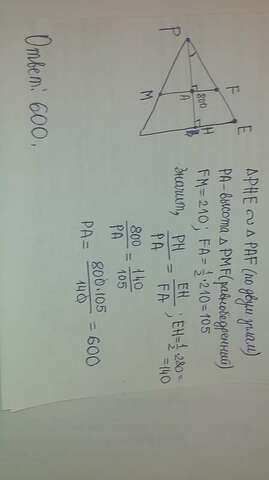 P
M
A
800
F
B
H
E
△PHE ∾ △PAF (по двум углам)
PA - высота △PMF (равнобедренный)
FM = 210; FA = 1/2 · 210 = 105
значит, PH/PA = EH/FA ; EH = 1/2 · 280 =
= 140
800/PA = 140/105
PA = 800·105/140 = 600
Ответ: 600.